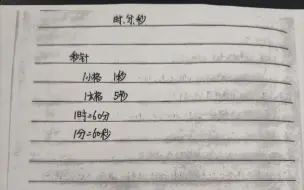 时.分.秒
秒针
1小格 1秒
1大格 5秒
1时=60分
1分=60秒